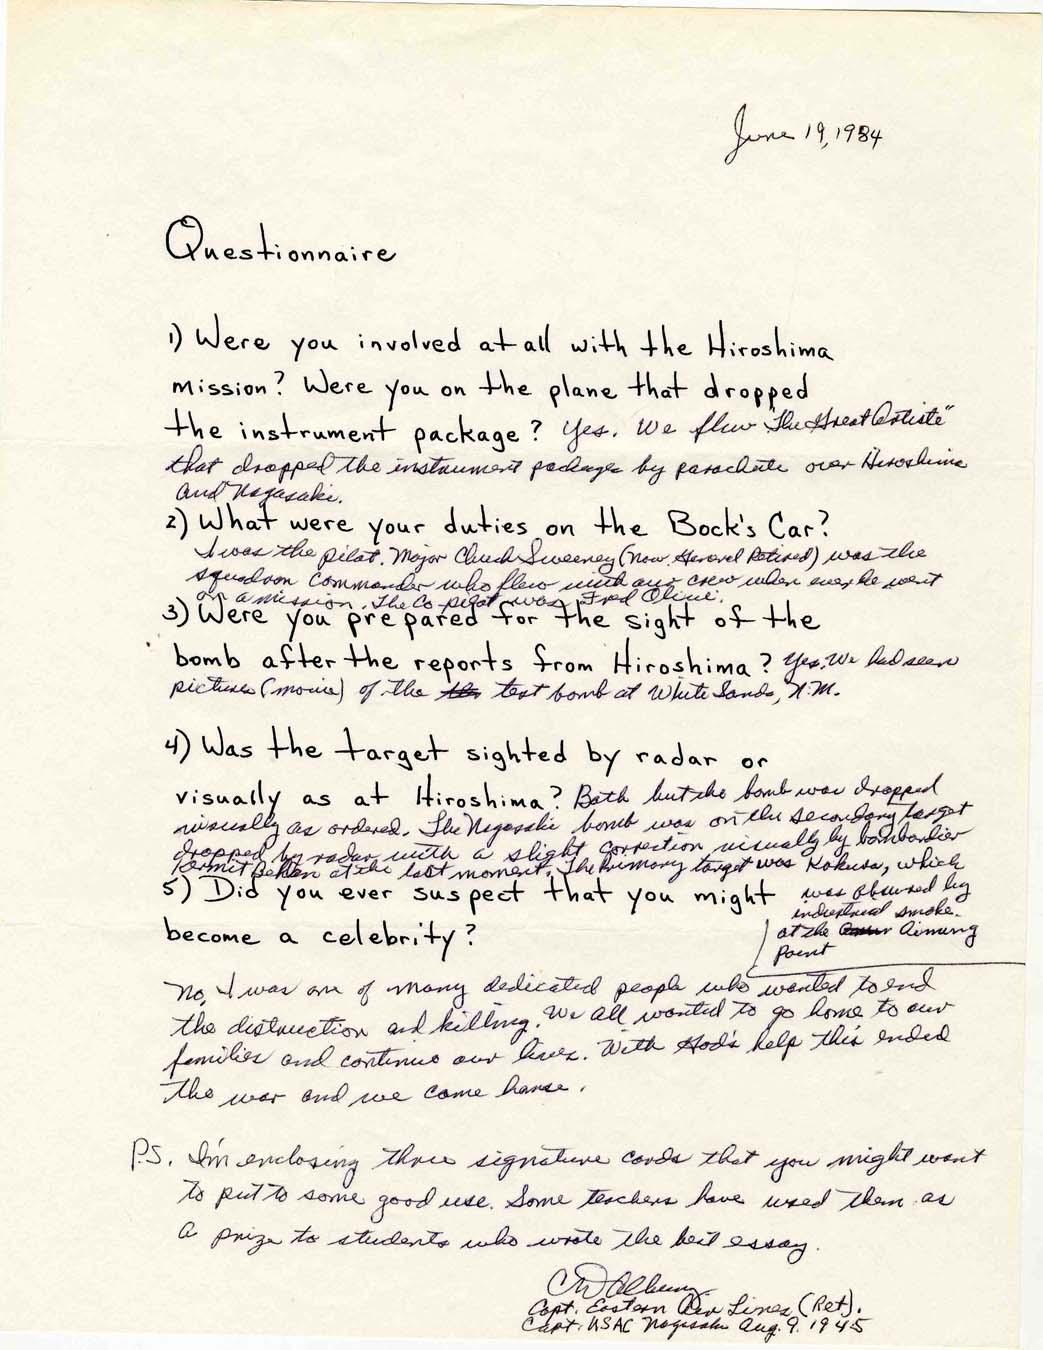 June 19, 1984
Questionnaire
1) Were you involved at all with the Hiroshima
mission? Were you on the plane that dropped
the instrument package? Yes. We flew "The Great Artiste"
that dropped the instrument packages by parachute over Hiroshima
and Nagasaki.
2) What were your duties on the Bock's Car?
I was the pilot. Major Chuck Sweeney (now General Retired) was the
squadron commander who flew with our crew when ever he went
on a mission. The Co-pilot was Fred Olivi.
3) Were you prepared for the sight of the
bomb after the reports from Hiroshima? Yes. We had seen
pictures (movie) of the test bomb at White Sands, N.M.
4) Was the target sighted by radar or
visually as at Hiroshima? Both but the bomb was dropped
visually as ordered. The Nagasaki bomb was on the secondary target
dropped by radar with a slight correction visually by bombardier
Kermit Behan at the last moment. The Primary target was Kokura, which
5) Did you ever suspect that you might
was obsured by
industrial smoke.
become a celebrity?
at the Aiming
Point
No, I was one of many dedicated people who wanted to end
the distruction and killing. We all wanted to go home to our
families and continue our lives. With God's help this ended
the war and we came home.
P.S. I'm enclosing three signature cards that you might want
to put to some good use. Some teachers have used them as
a prize to students who wrote the best essay.
CD Albury
Capt. Eastern Air Lines (Ret).
Capt. USAC Nagasaki Aug. 9. 1945